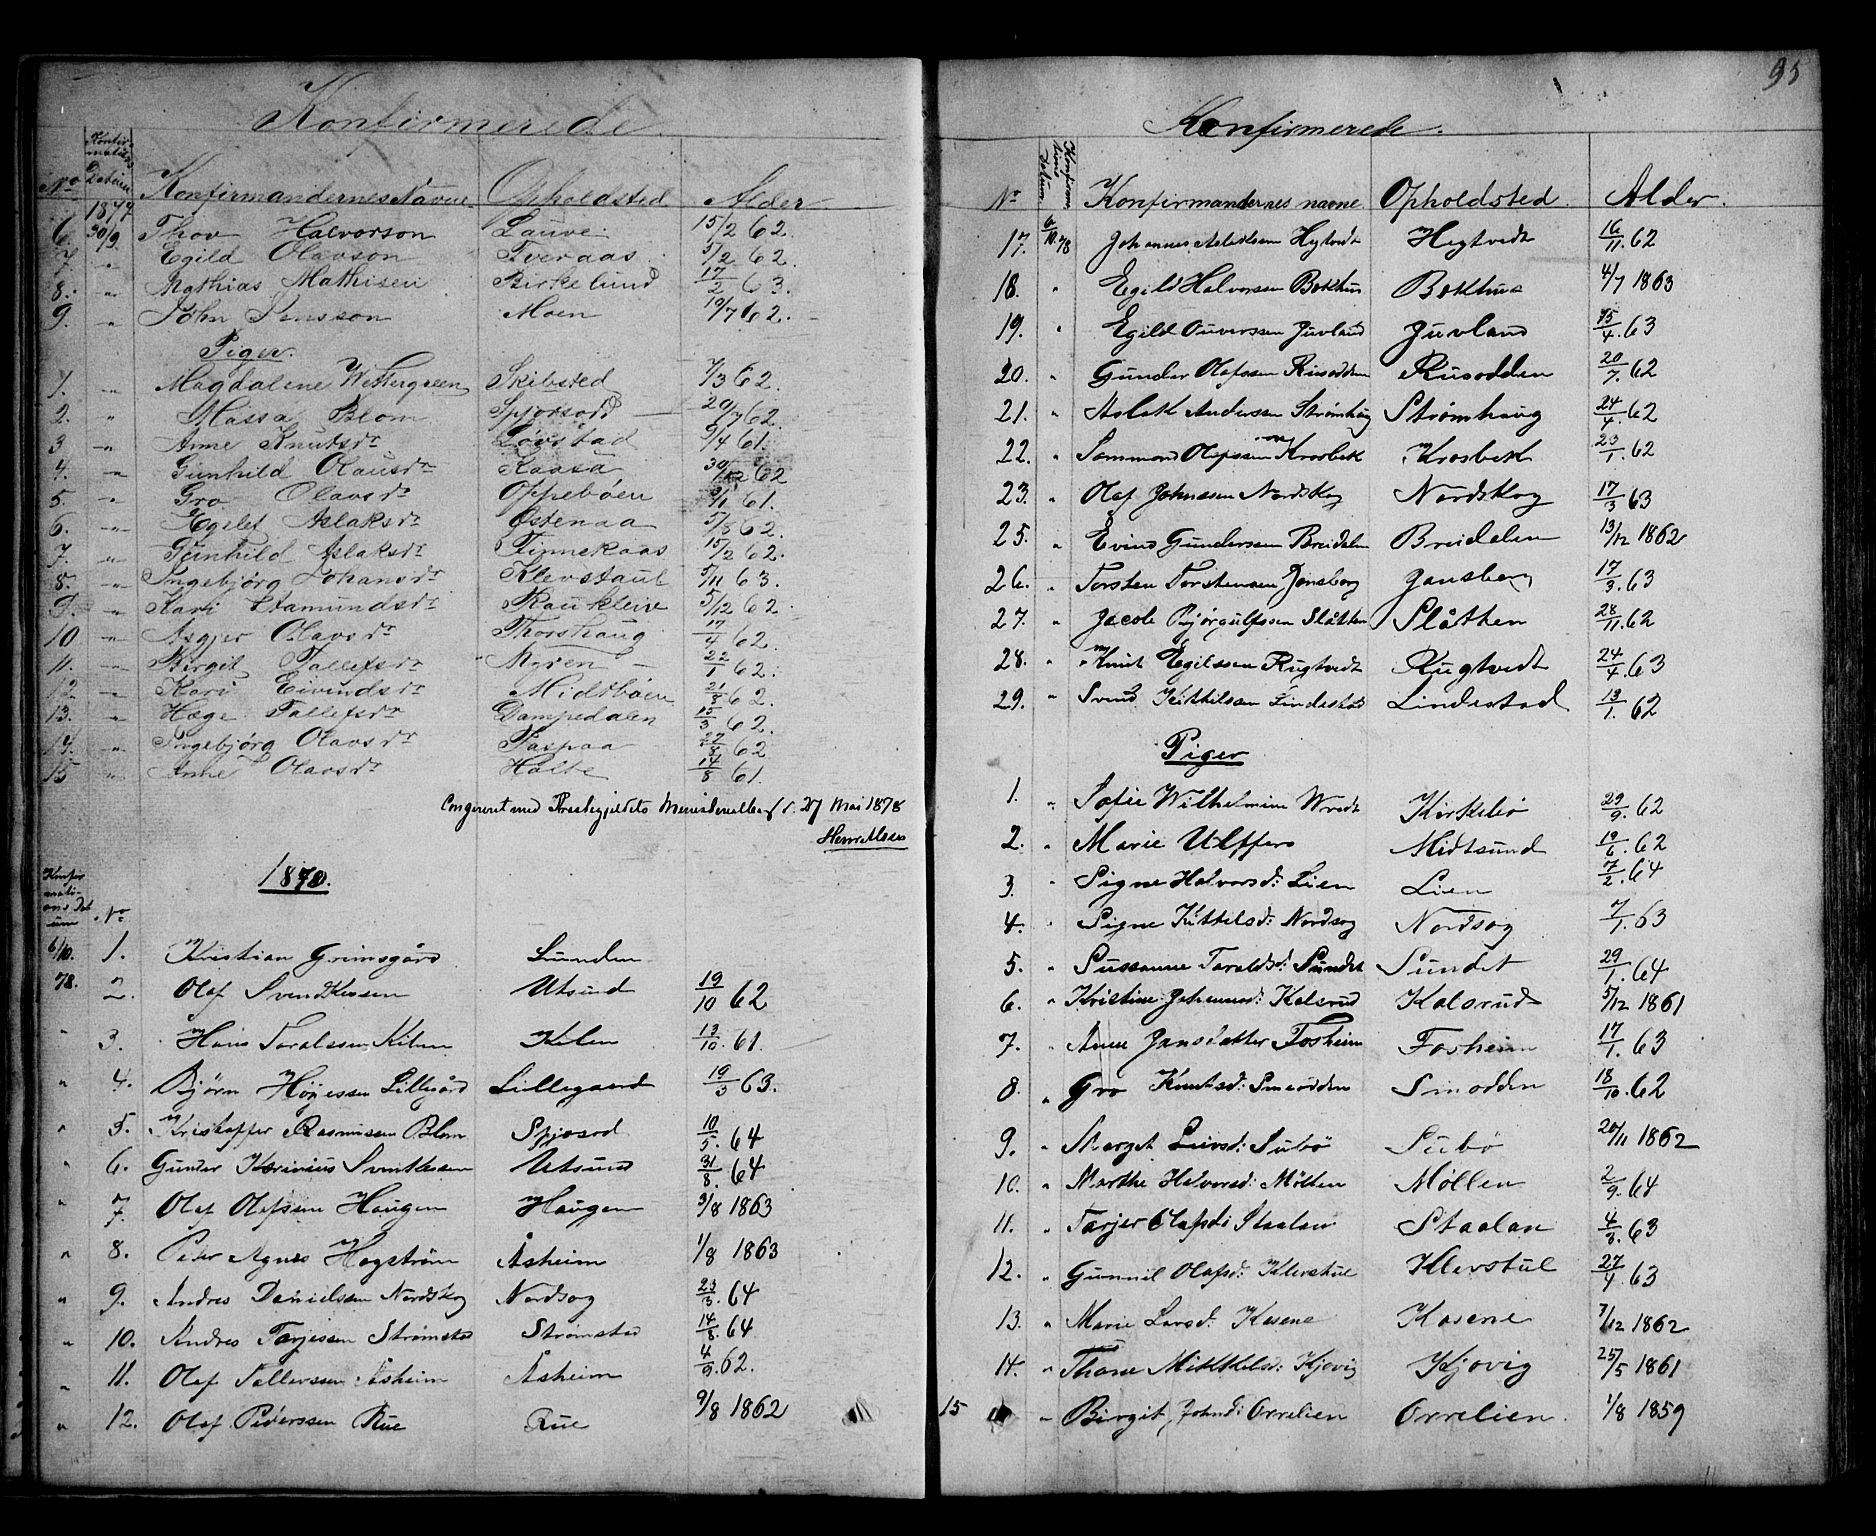 Konfirmerede.
No Konfirmations Datum Konfirmandernes Navne Opholdsted Alder
1877
6. 30/9. Thov Halvorson Lauve 15/2 62.
7. " Egild Olavson Tveraas 5/2 62.
8. " Mathias Mathisen Birkelund 17/2 63.
9. " John Jensson Moen 19/7 62.
Piger.
1. " Magdalene Wettergreen Skibsted 7/3 62.
2. " Massa Blom Spjosodd 20/7 62.
3 " Anne Knutsdr Løvstad 9/4 61.
4. " Gunhild Olausdr Kaasa 30/12 62
5. " Gro Olavsdr Oppebøen 61.
6. " Egelet Aslaksdr Østenaa 5/8 62.
7. " Gunhild Aslaksdr Finnekaas 15/2 62.
8. " Ingebjörg Johansdr Klevstaul 5/11 63.
9. " Kari Aamundsdr Raukleiv 5/12 62.
10 " Asgjer Olavsdr Thorshaug 17/4 62.
11. " Birgit Tallefsdr Myren 22/1 62.
12 " Kari Eivindsdr Midtbøen 21/8 62.
13. " Hæge Tallefsdr Dampedalen 15/3 62.
14. " Ingebjörg Olavsdr Taspaa 62
15 " Anne Olavsdr Holte 14/8 61.
Congereret med Præstegjeldets Ministerialbog d. 27 Mai 1878
1878.
Konfirmations Datum No
6/10. 1. Kristian Grimsgård Lunden
78. 2. Olaf Svenkessen Utsund 19/10 62
" 3. Hans Taralssen Kilen Kilen 13/10. 61.
" 4. Björn Högessen Lillegård Lillegaard 19/3 63.
" 5. Kristoffer Rasmussen Blom Spjosod 10/5. 64
" 6. Gunder Svenkessen Utsund 31/8. 64
" 7. Olaf Olafssen Haugen Haugen 3/8 1863
" 8. Peter Agnes Hegström Åsheim 1/8 1863
" 9. Andres Danielsen Nordskog Nordsog 23/3. 64
" 10. Andres Tarjessen Strømstad Strømstad 14/8. 64
" 11. Olaf Tallevssen Åsheim Åsheim 4/9. 62.
" 12. Olaf Pederssen Rue Rue 9/8 1862
95
Konfirmerede.
Nr Konfirmations datum Konfirmandernes navne Opholdsted. Alder.
17. 6/10. 78 Johannes Aslaksen Hegtvedt Hegtvedt 16/11 62
18. " Egild Halvorsen Bøkhus Bøkhus 4/7 1863
19. " Egild Juvland Juvland 15/4. 63
20. " Gunder Olafssen Rusodden Rusodden 20/7. 62
21. " Aslak Anderssen Strømhaug Strømhaug 24/4. 62
22. " Sammund Olafssen Krosbek Krosbek 23/1. 62
23. " Olaf Johnssen Nordskog Nordskog 17/3 63
25. " Evind Gunderssen Breidalen Breidalen 13/12 1862
26. " Torsten Torstenssen Jonsberg Jonsberg 17/3. 63
27. " Jacob Bjørgulfssen Slåtten Slåtten 28/11. 62
28. " Knut Egilssen Rugtvedt Rugtvedt 24/4. 63
29. " Svend Kittilssen Lindestad Lindestad 13/1. 62
Piger
1. " Sofie Wilhelmine Wredt Kirkebø 29/9. 62
2. " Marie Ulffers Midtsund 19/6. 62
3. " Signe Halvorsd: Lien Lien 7/2. 64
4. " Signe Kittelsd: Nordsog Nordsog 7/1. 63
5. " Sussanne Taraldsd: Sundet Sundet 29/1. 64
6. " Kristine Johannesd: Kalsrud Kalsrud 5/12 1861
7. " Anne Jansdatter Fosheim Fosheim 17/1. 63
8. " Gro Knutsd: Smeodden Smodden 18/10. 62
9. " Marget Leivsd: Subø Subø 20/11 1862
10. " Marthe Halvorsd: Møllen Møllen 2/9. 64
11. " Tarjer Olafsd: Staalan Staalan 4/3. 63
12. " Gunnil Olafsd: Klevstul Klevstul 27/4. 63
13. " Marie Larsd: Kasene Kasene 7/12 1862
14. " Thone Mikkelsd: Kjovig Kjovig 25/5 1861
15 " Birgit Johnsd: Orrelien Orrelien. 1/8 1859